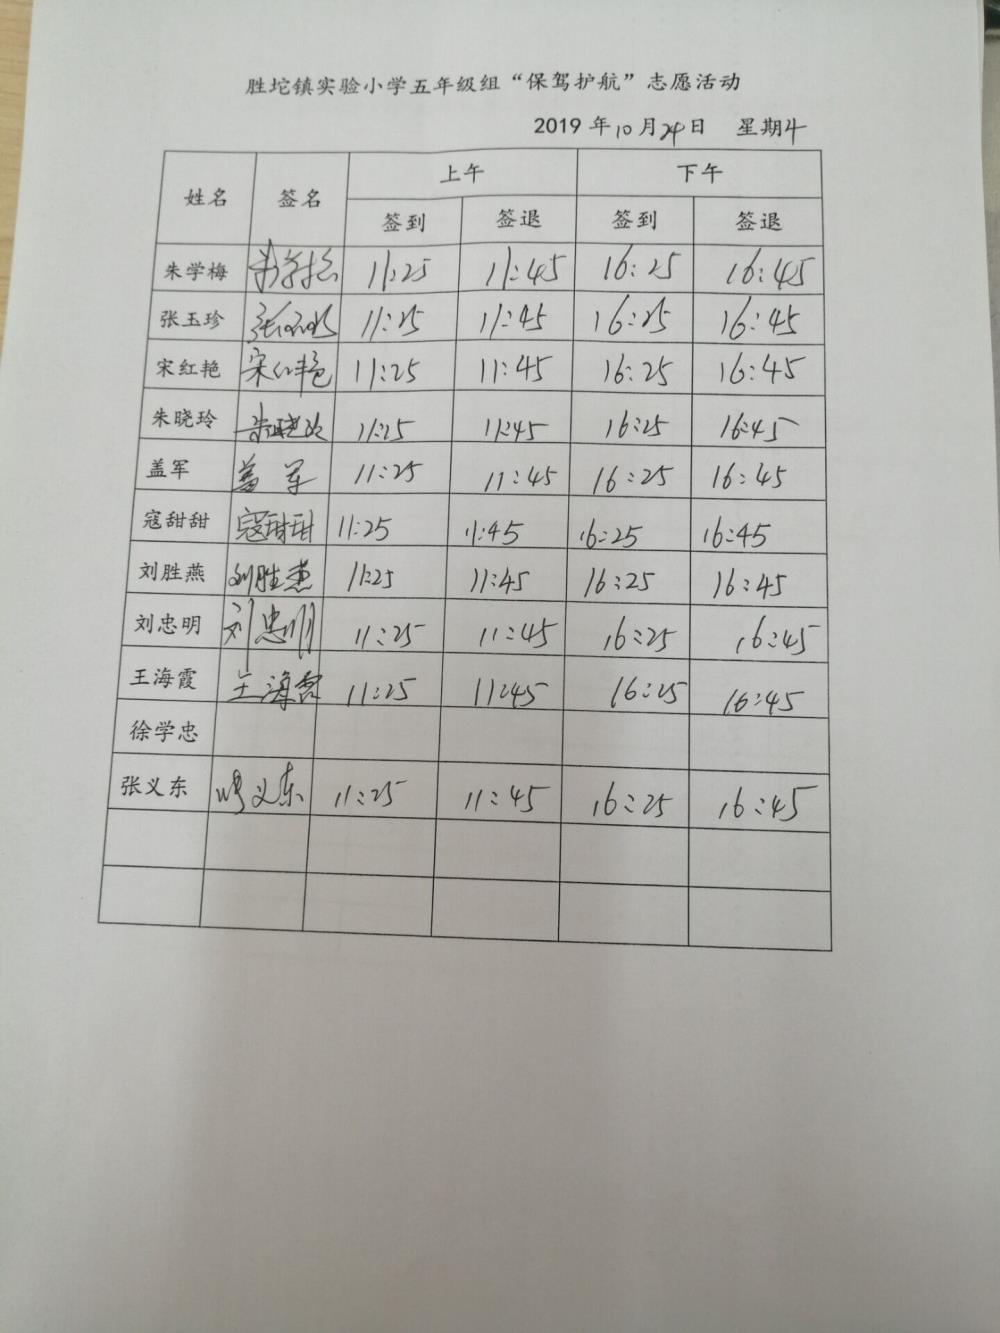 胜坨镇实验小学五年级组“保驾护航”志愿活动
2019 年 10 月 24 日 星期4
姓名 签名 上午 下午
签到 签退 签到 签退
朱学梅 朱学梅 11:25 11:45 16:25 16:45
张玉珍 11:25 11:45 16:25 16:45
宋红艳 宋红艳 11:25 11:45 16:25 16:45
朱晓玲 朱晓玲 11:25 11:45 16:25 16:45
盖军 盖军 11:25 11:45 16:25 16:45
寇甜甜 寇甜甜 11:25 11:45 16:25 16:45
刘胜燕 刘胜燕 11:25 11:45 16:25 16:45
刘忠明 刘忠明 11:25 11:45 16:25 16:45
王海霞 王海霞 11:25 11:45 16:25 16:45
徐学忠
张义东 张义东 11:25 11:45 16:25 16:45